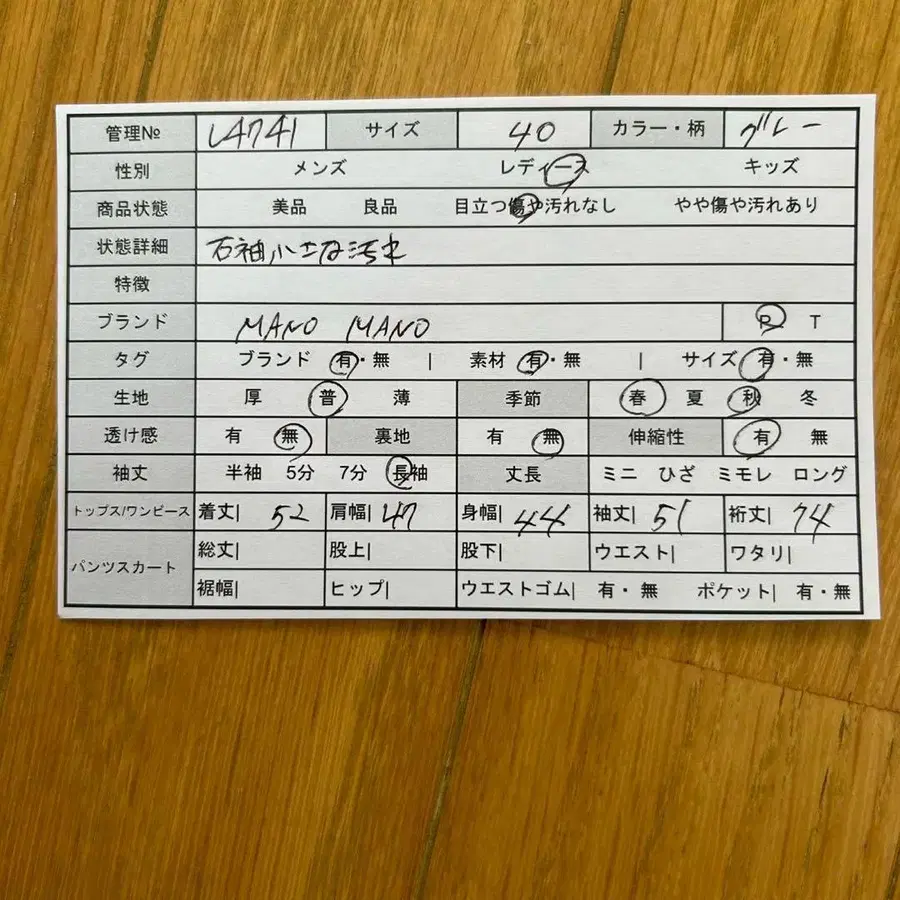 管理№ L4741 サイズ 40 カラー・柄 グレー
性別 メンズ レディース キッズ
商品状態 美品 良品 目立つ傷や汚れなし やや傷や汚れあり
状態詳細 右袖小さな汚れ
特徴
ブランド MANO MANO R T
タグ ブランド 有・無 | 素材 有・無 | サイズ 有・無
生地 厚 普 薄 季節 春 夏 秋 冬
透け感 有 無 裏地 有 無 伸縮性 有 無
袖丈 半袖 5分 7分 長袖 丈長 ミニ ひざ ミモレ ロング
トップス/ワンピース 着丈| 52 肩幅| 47 身幅| 44 袖丈| 51 裄丈| 74
パンツスカート 総丈| 股上| 股下| ウエスト| ワタリ|
裾幅| ヒップ| ウエストゴム| 有・無 ポケット| 有・無